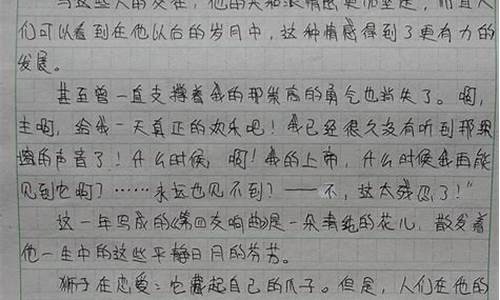 与这些人的交往，他的共和派情感更加坚定，而且人
们可以看到在他以后的岁月中，这种情感得到了更有力的
发展。
甚至曾一直支撑着我的那崇高的勇气也消失了。啊，
主啊，给我一天真正的欢乐吧！我已经很久没有听到那
的声音了！什么时候，啊！我的上帝，什么时候我再能
见到它啊？……永远也见不到？——不，这太残忍了！”
这一年写成的《第四交响曲》是一朵清纯的花儿，散发着
他一生中的这些平静日月的芬芳。
狮子在恋爱：它藏起自己的爪子。但是，人们在他的